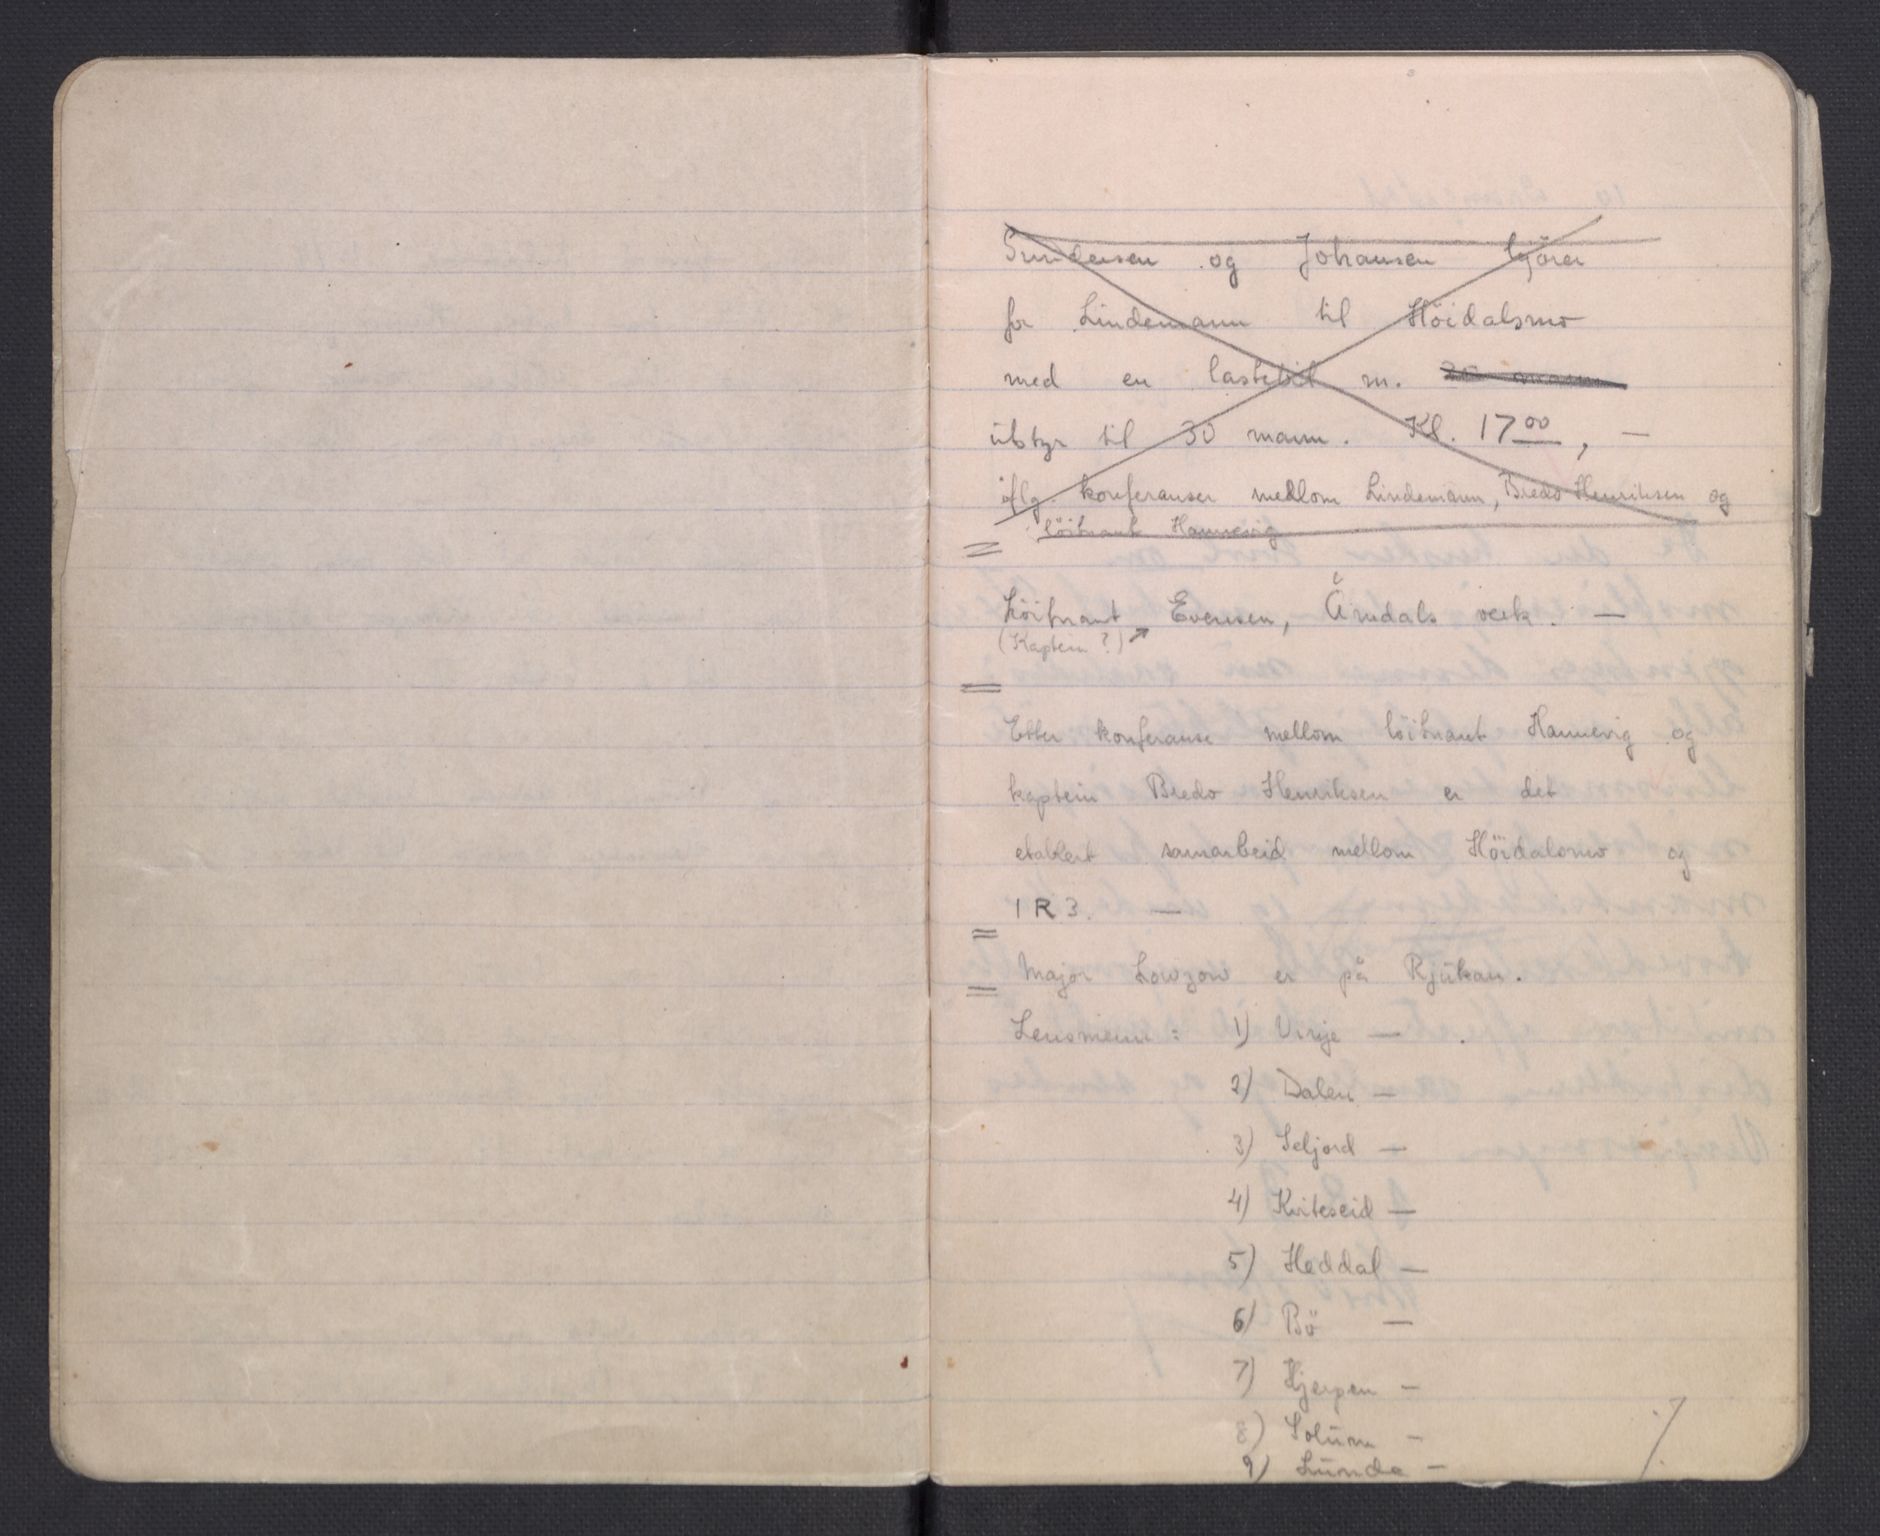 og Johansen kjörer
for Lindemann til Höidalsmo
med en lastebil m. 20 mann
utstyr til 30 mann. Kl. 17 00, —
iflg. konferanser mellom Lindemann, Bredo Henriksen og
löitnant Hannevig
Löitnant Evensen, Åmdals verk. —
(Kaptein ?)
Etter konferanse mellom löitnant Hannevig og
kaptein Bredo Henriksen er det
etablert samarbeid mellom Höidalsmo og
IR3. —
Major Lowzow er på Rjukan.
Lensmenn : 1) Vinje —
2) Dalen —
3) Seljord —
4) Kviteseid —
5) Heddal —
6) Bö —
7) Hjerpen —
8) Solum —
9) Lunde —